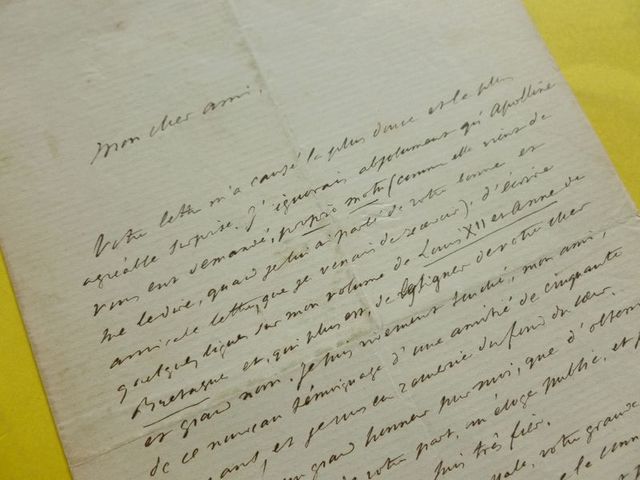 Mon cher ami,
Votre lettre m'a causé la plus douce et la plus
agréable surprise. J'ignorais absolument qu'Apolline
vous eut demandé, proprio motu (comme elle vient de
me le dire, quand je lui ai parlé de votre bonne et
amicale lettre, que je venais de recevoir), d'écrire
quelques lignes sur mon volume de Louis XII et Anne de
Bretagne et, qui plus est, de les signer de votre cher
et grand nom. Je suis vivement touché, mon ami,
de ce nouveau témoignage d'une amitié de cinquante
ans, et je vous en remercie du fond du cœur.
un grand honneur pour moi, que d'obtenir
de votre part, un éloge public, et
suis très fier.
votre grande